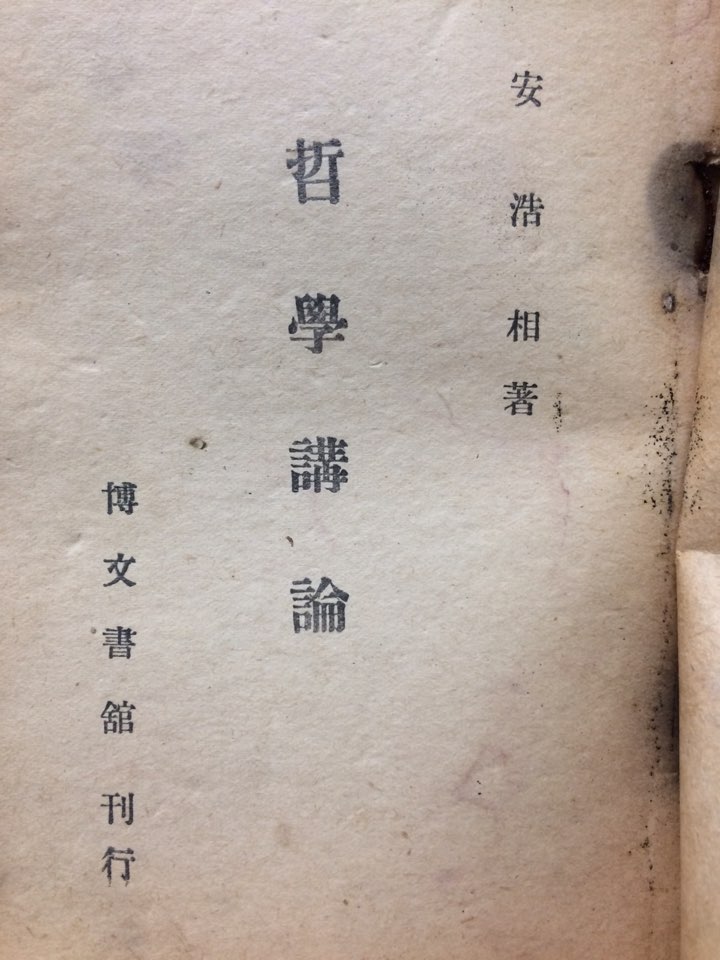 安浩相著
哲學講論
博文書舘刊行